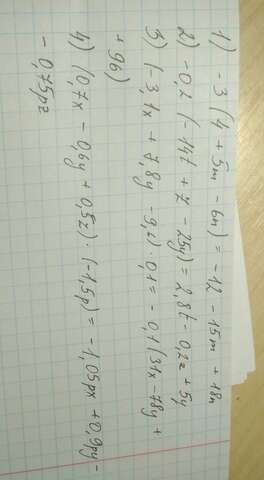 1) -3(4 + 5m - 6n) = -12 - 15m + 18n
2) -0,2 (-14t + z - 25y) = 2,8t - 0,2z + 5y
3) (-3,1x + 7,8y - 9,2) · 0,1 = - 0,1(31x - 78y +
+ 96)
4) (0,7x - 0,6y + 0,5z) · (-1,5p) = - 1,05px + 0,9py -
- 0,75pz